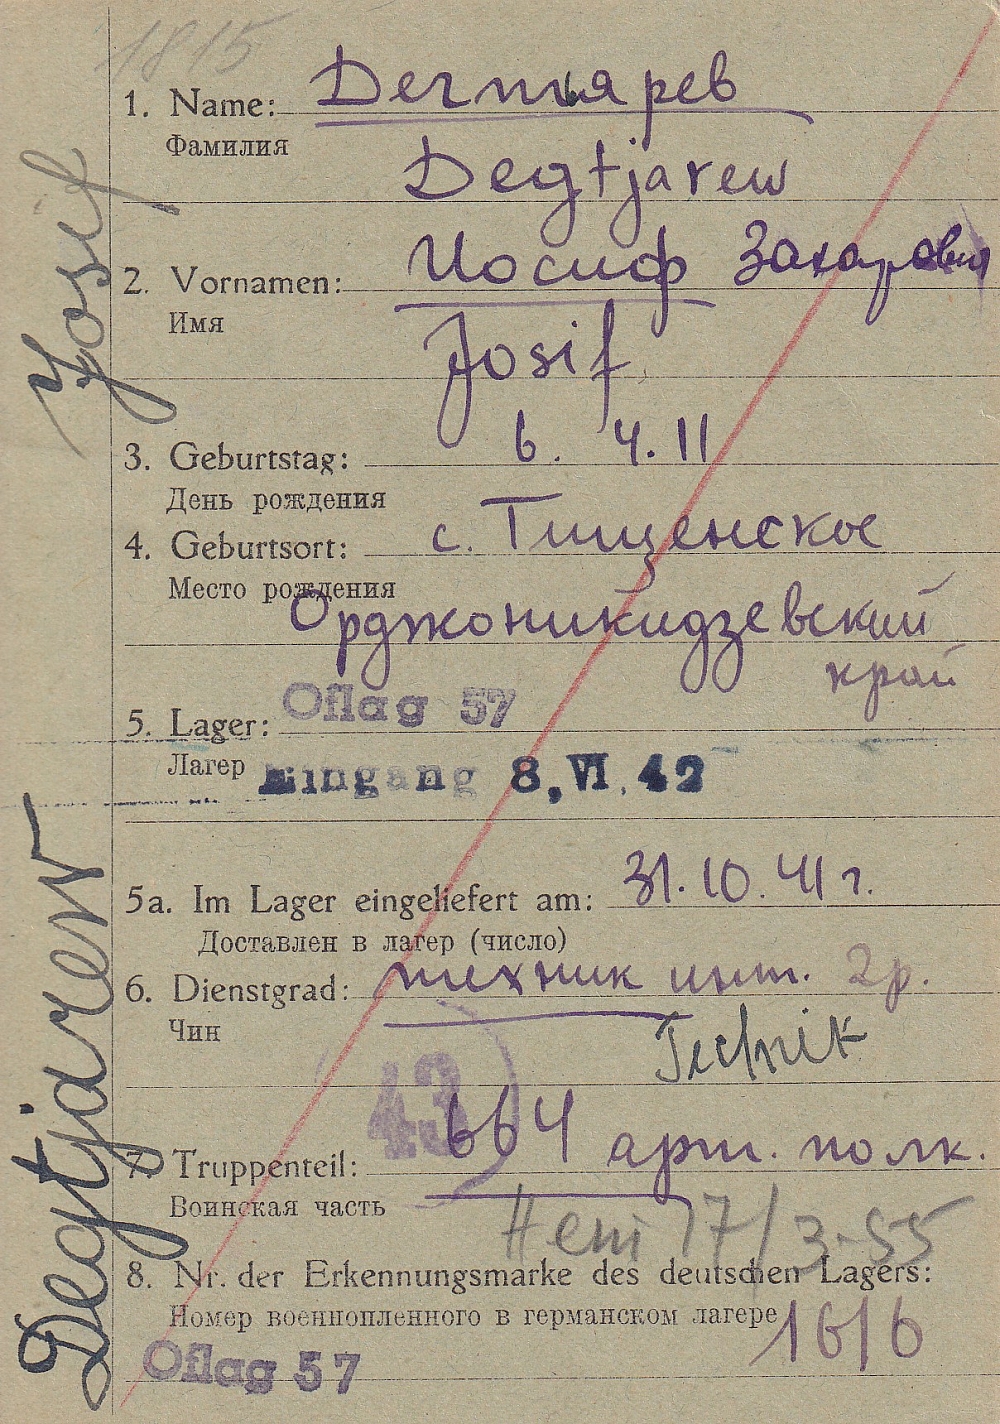 1815
1. Name: Дегтярев
Фамилия
Degtjarew
2. Vornamen: Иосиф Захарович
Имя
Josif
3. Geburtstag: 6. 4. 11
День рождения
4. Geburtsort: с. Тищенское
Место рождения
Орджоникидзевский
край
5. Lager: Oflag 57
Лагер Eingang 8. VI. 42
5a. Im Lager eingeliefert am: 31. 10. 41 г.
Доставлен в лагер (число)
6. Dienstgrad: техник инт. 2р.
Чин
Technik
43
7. Truppenteil: 664 арт. полк.
Воинская часть
Нет 17/3-55
8. Nr. der Erkennungsmarke des deutschen Lagers:
Номер военнопленного в германском лагере 1616
Oflag 57
Degtjarew Josif